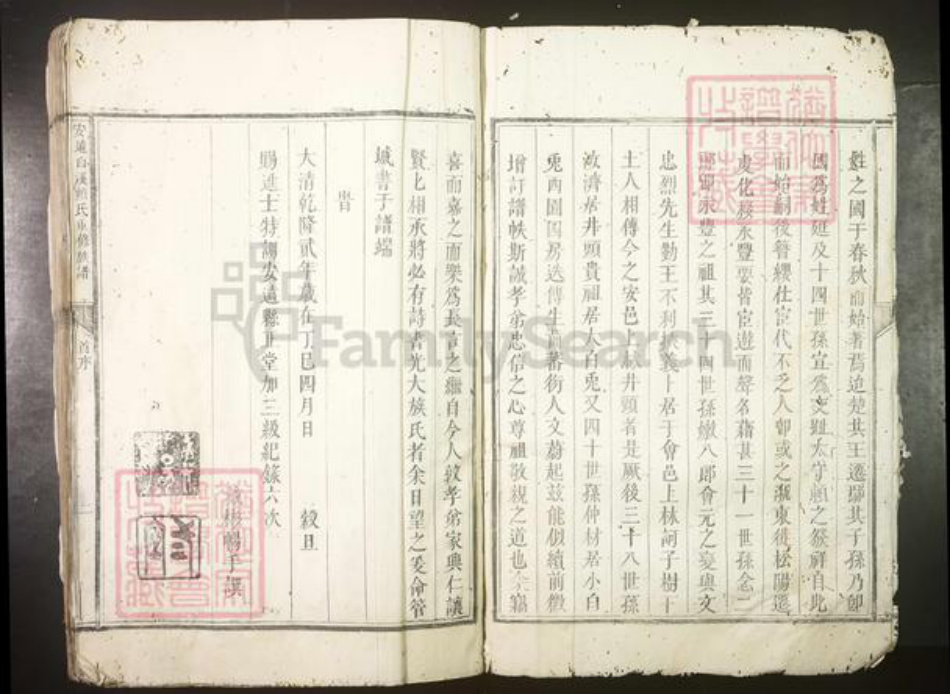 姓之國于春秋而始著焉迨楚共王遷賴其子孫乃卽
國爲姓延及十四世孫宜爲交趾太守賴之發祥自此
而始嗣後簪纓仕宦代不乏人卽或之浙東徙松陽遷
虔化發永豐要皆宦遊而聲名藉甚三十一世孫念二
郎卽永豐之祖其三十四世孫嫩八郎會元之變與文
忠烈先生勤王不利扶義卜居于會邑上林訶子樹下
土人相傳今之安邑 賴井頭者是厥後三十八世孫
汝濟居井頭貴祖居大白兎又四十世孫仲材居小白
兎西園四房迭傳生齒蕃衍人文蔚起玆能似續前徽
增訂譜帙斯誠孝弟忠信之心尊祖敬親之道也余竊
喜而嘉之而樂爲長言之繼自今人敦孝弟家興仁讓
賢七相承將必有詩書光大族氏者余日望之爰命管
城書于譜端
旹
大清乾隆貳年歲在丁巳四月日 穀旦
賜進士特調安遠縣世堂加三級紀錄六次
手譔
安遠白 賴氏重修族譜
首序
FamilySearch